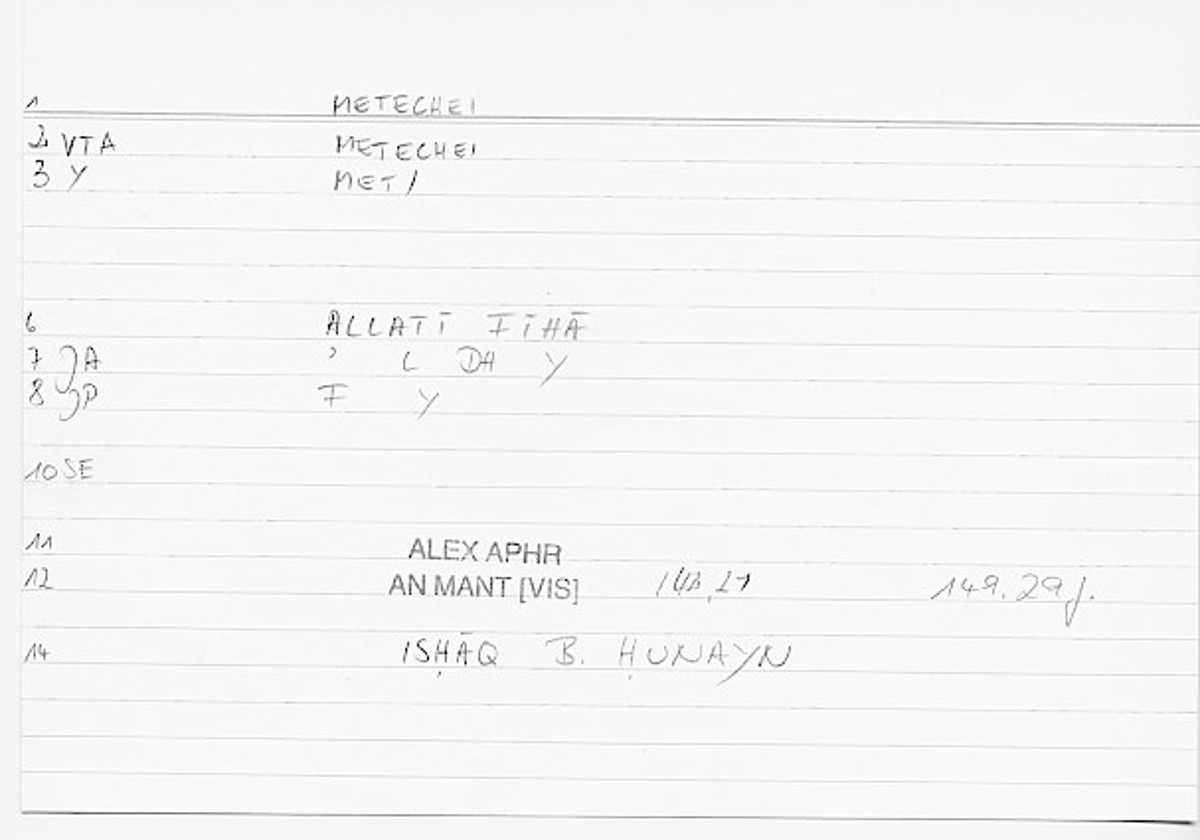 1 METECHEI
2 VTA METECHEI
3 Y MET/
6 ALLATĪ FĪHĀ
7 JA ʾ L DH Y
8 JP F Y
10 SE
11 ALEX APHR
12 AN MANT [VIS] 149.29f.
14 ISḤĀQ B. ḤUNAYN